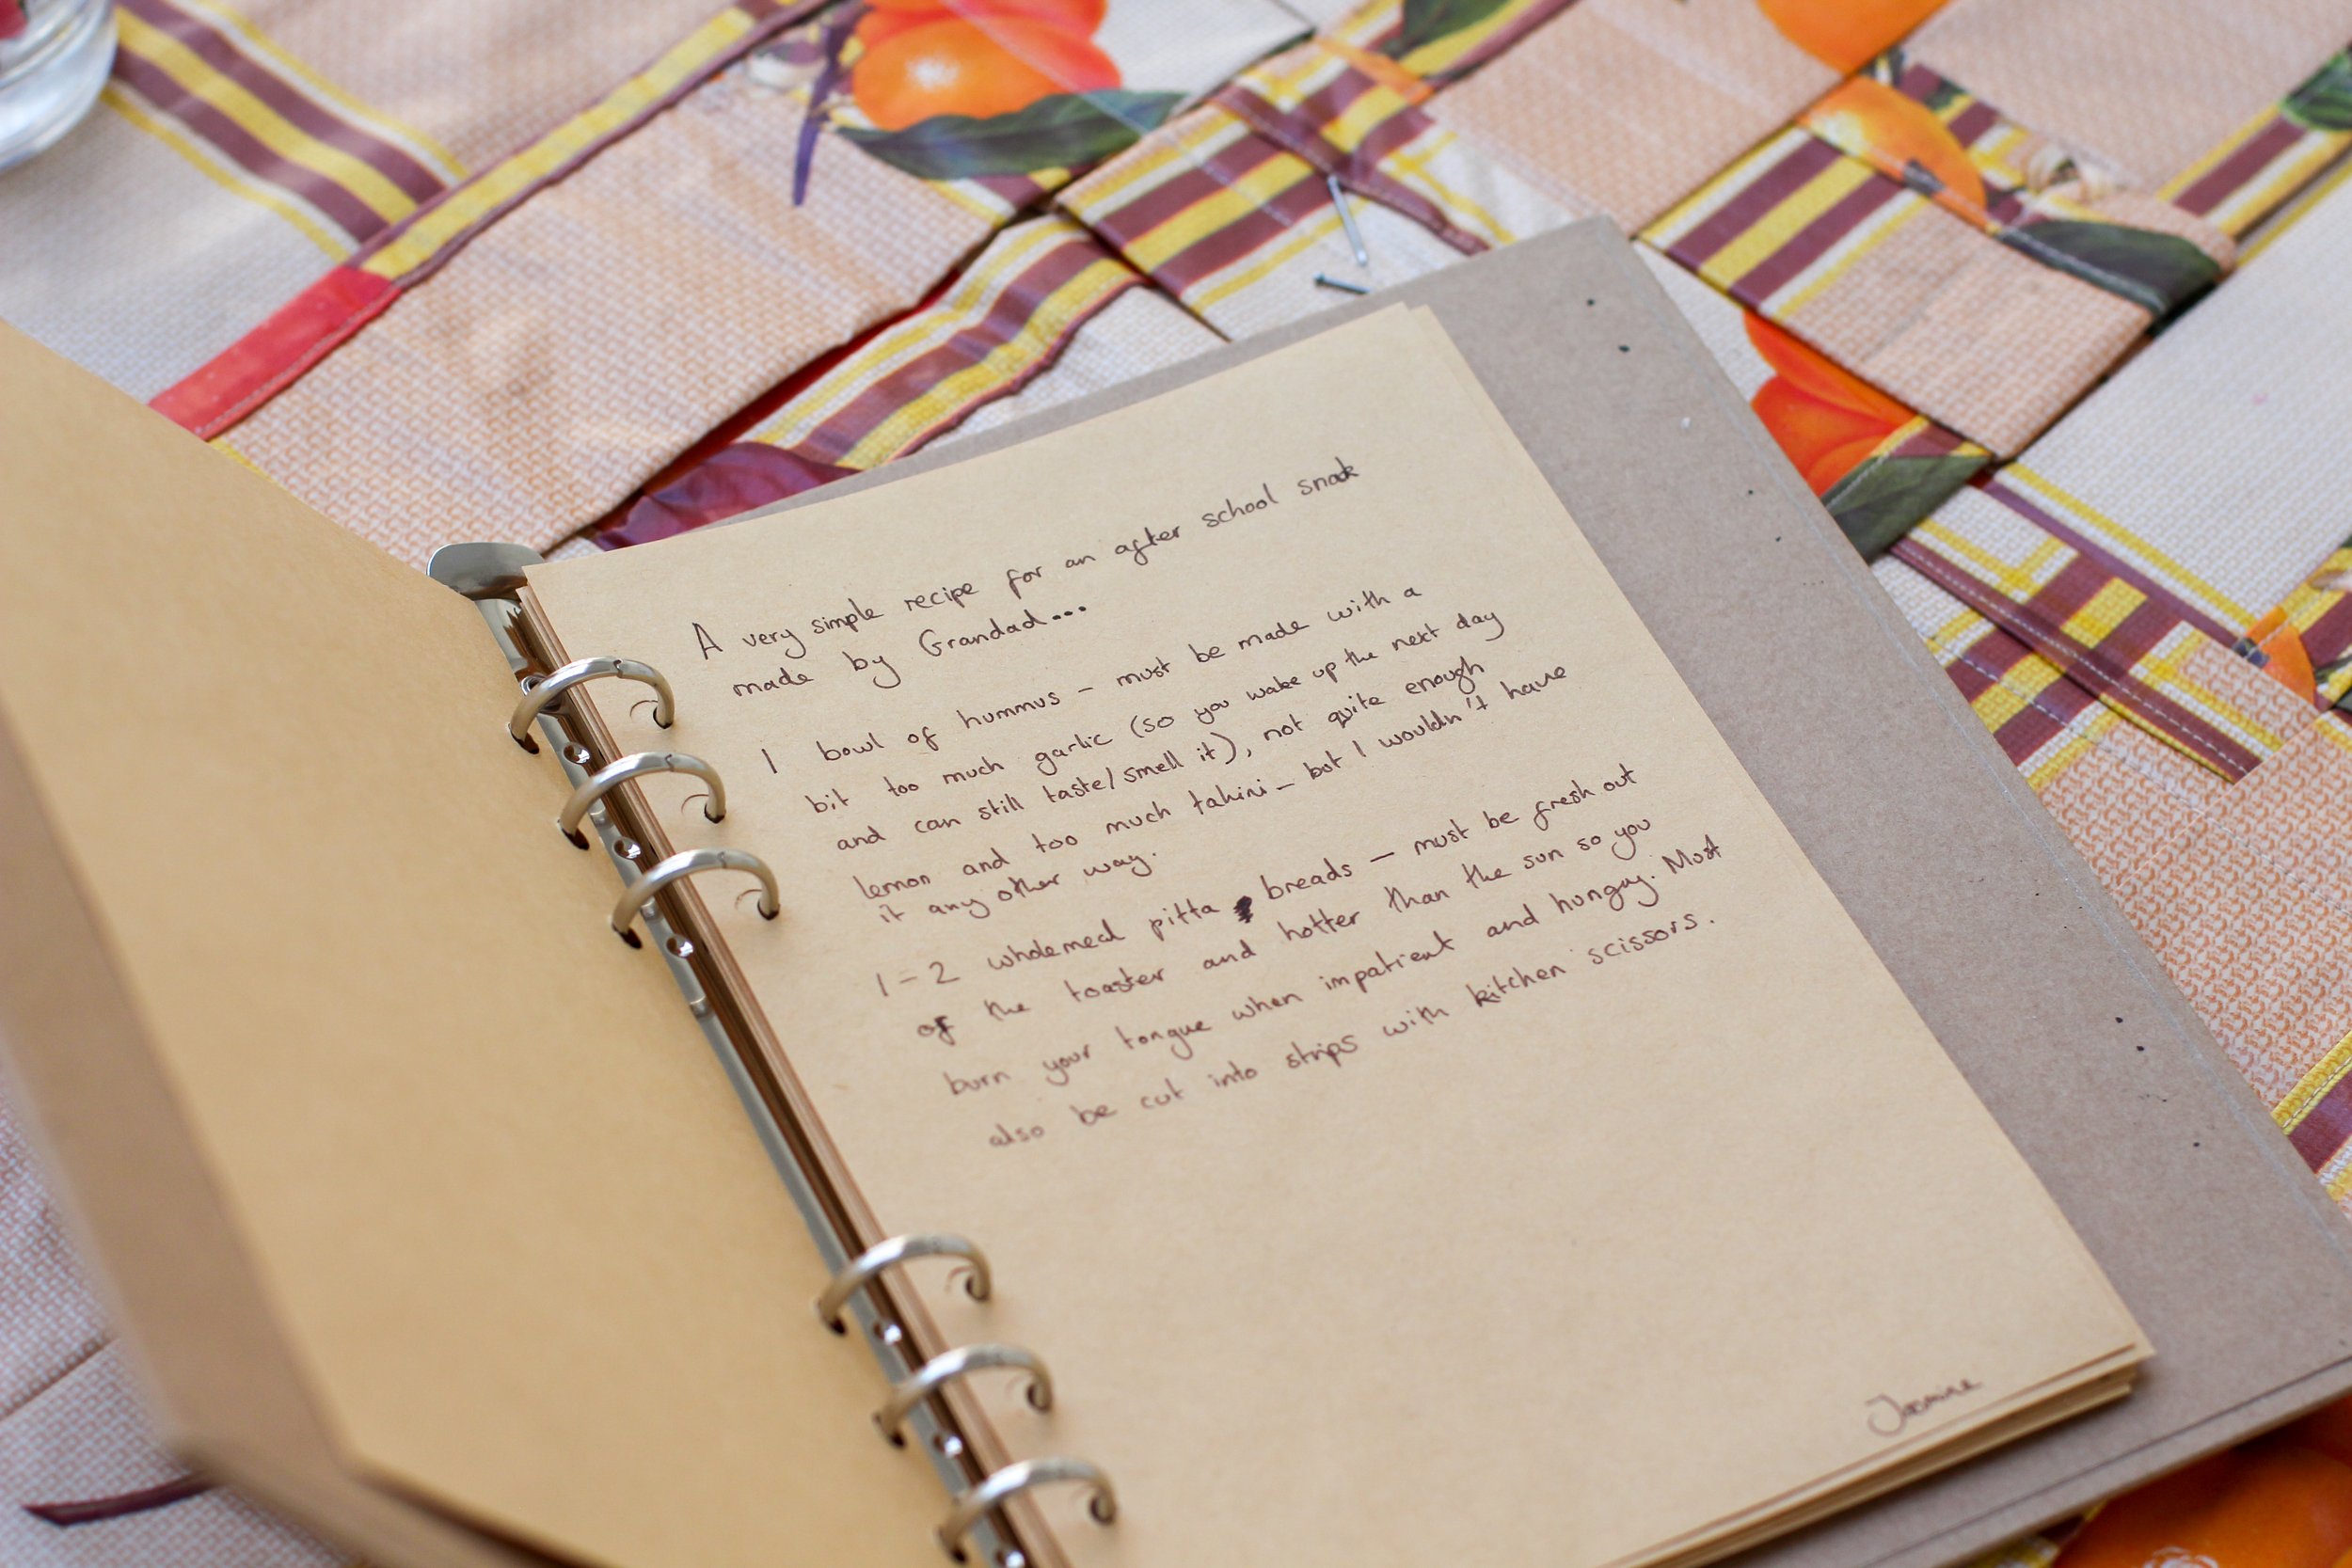 A very simple recipe for an after school snack
made by Grandad...
1 bowl of hummus - must be made with a
bit too much garlic (so you wake up the next day
and can still taste/smell it), not quite enough
lemon and too much tahini - but I wouldn't have
it any other way.
1-2 wholemeal pitta breads - must be fresh out
of the toaster and hotter than the sun so you
burn your tongue when impatient and hungry. Must
also be cut into strips with kitchen scissors.
Jasmine